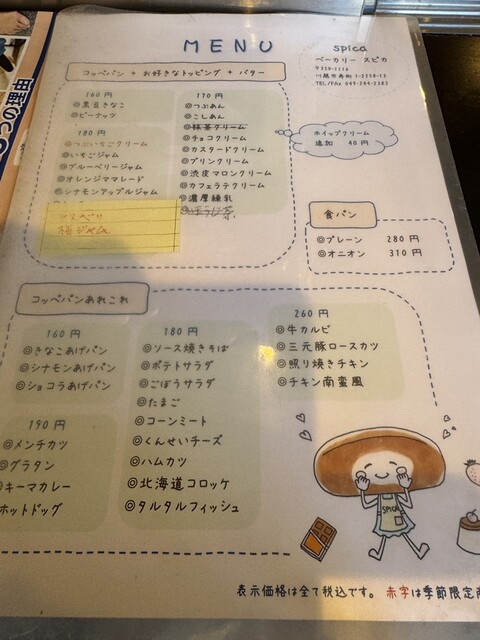 MENU
spica
ベーカリー スピカ
コッペパン + お好きなトッピング + バター
160円
◎黒豆きなこ
◎ピーナッツ
180円
◎つぶいちごクリーム
◎いちごジャム
◎ブルーベリージャム
◎オレンジママレード
◎シナモンアップルジャム
170円
◎つぶあん
◎こしあん
◎抹茶クリーム
◎チョコクリーム
◎カスタードクリーム
◎プリンクリーム
◎渋皮マロンクリーム
◎カフェラテクリーム
◎濃厚練乳
ホイップクリーム
追加 40円
食パン
◎プレーン 280円
◎オニオン 310円
コッペパンあれこれ
160円
◎きなこあげパン
◎シナモンあげパン
◎ショコラあげパン
190円
◎メンチカツ
◎グラタン
キーマカレー
ホットドッグ
180円
◎ソース焼きそば
◎ポテトサラダ
◎ごぼうサラダ
◎たまご
◎コーンミート
◎くんせいチーズ
◎ハムカツ
◎北海道コロッケ
◎タルタルフィッシュ
260円
◎牛カルビ
◎三元豚ロースカツ
◎照り焼きチキン
◎チキン南蛮風
SPICA
表示価格は全て税込です。 赤字は季節限定商